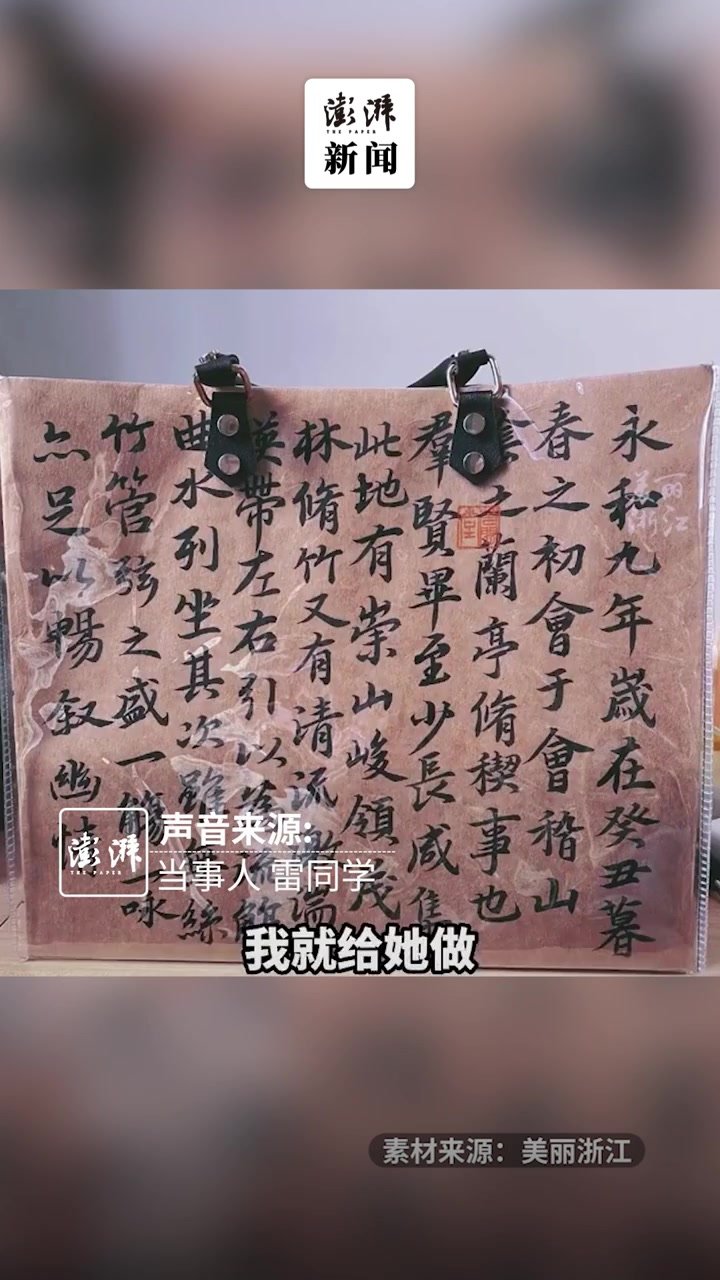 澎湃
THE PAPER
新闻
永和九年歲在癸丑暮
春之初會于會稽山
之蘭亭脩稧事也
羣賢畢至少長咸集
此地有崇山峻領茂
林脩竹又有清流湍
暎帶左右引以
曲水列坐其次雖絲
竹管弦之盛一觴一詠
亦足以暢叙幽情
美丽
浙江
澎湃
THE PAPER
声音来源:
当事人 雷同学
我就给她做
素材来源：美丽浙江